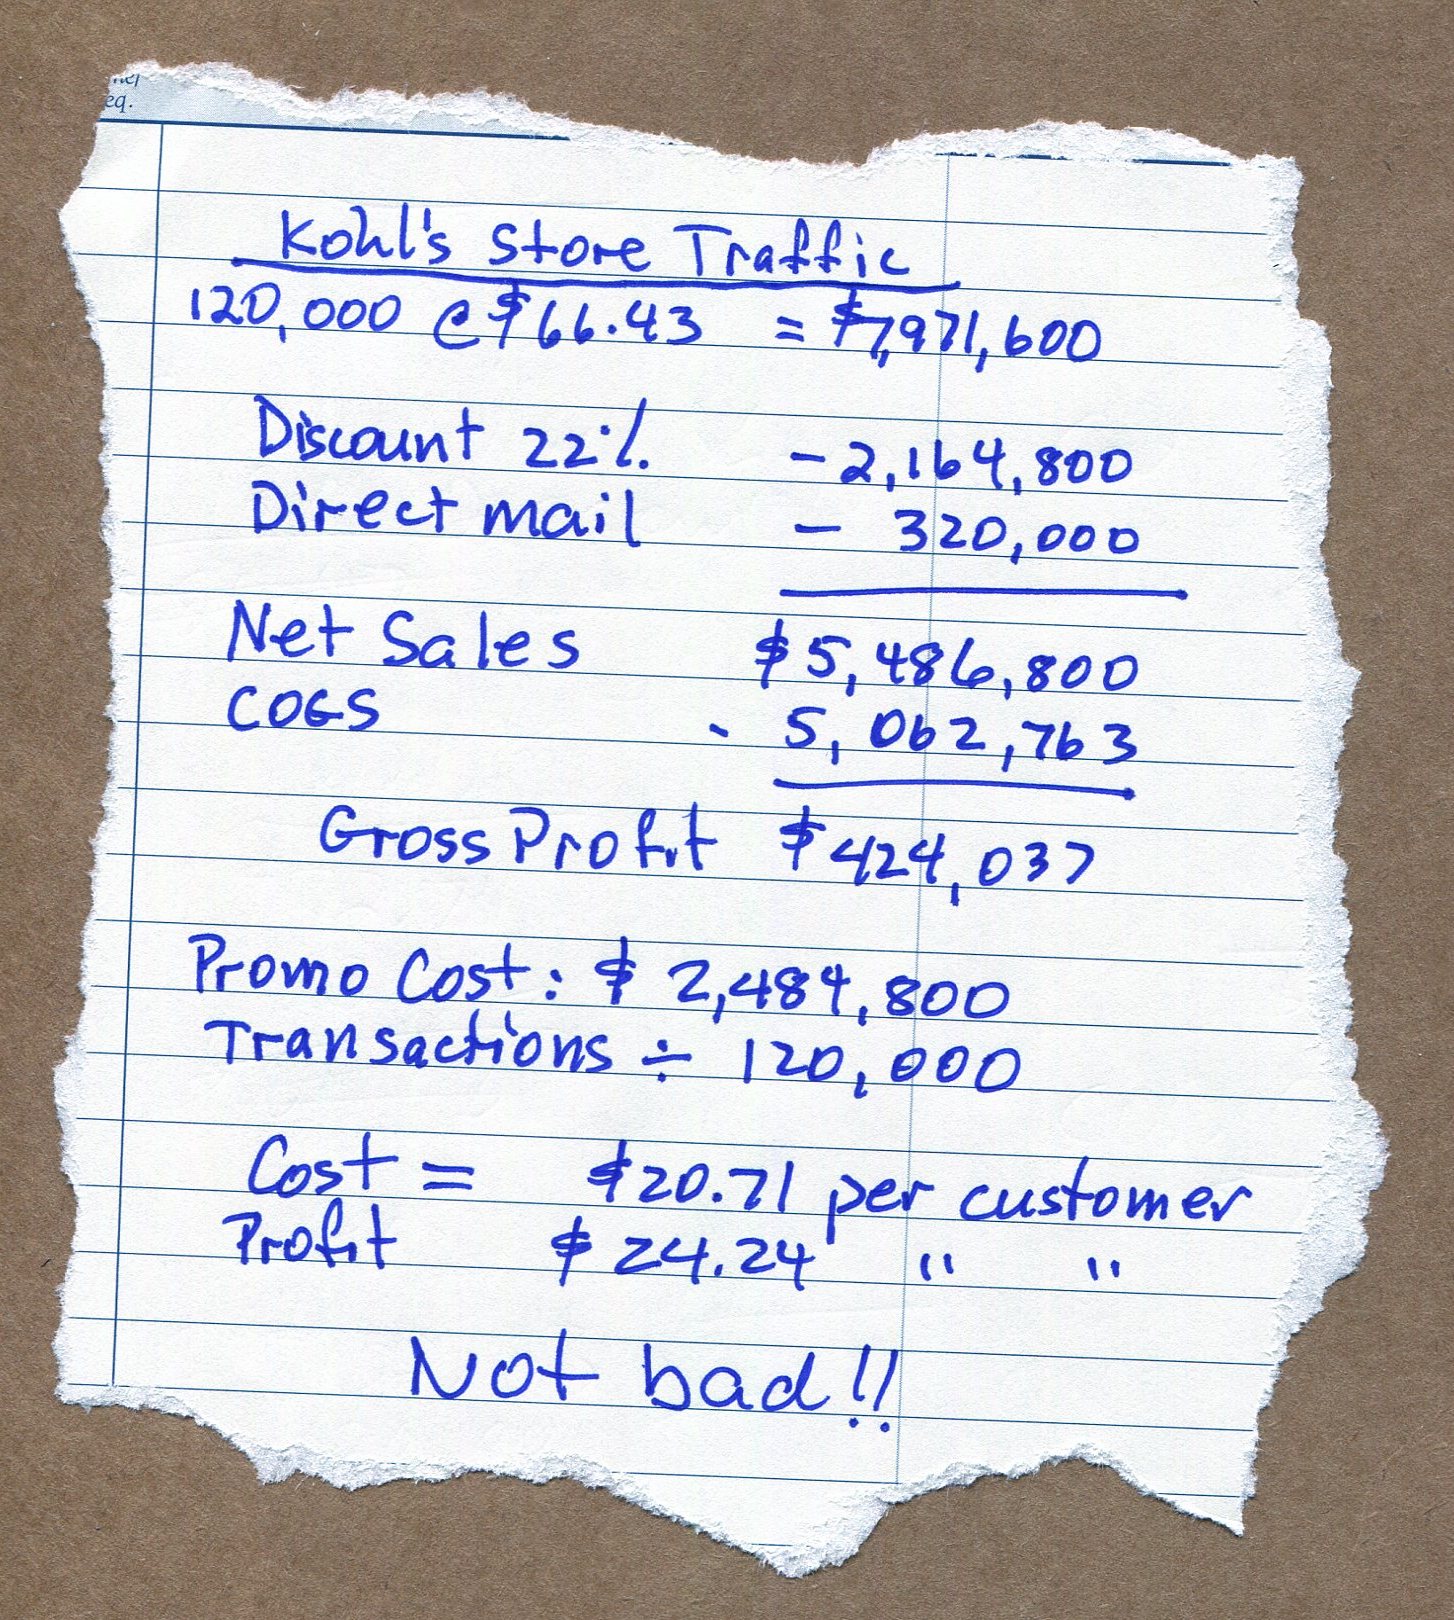 eq.
Kohl's Store Traffic
120,000 @ $66.43 = $7,971,600
Discount 22% - 2,164,800
Direct mail - 320,000
Net Sales $5,486,800
COGS - 5,062,763
Gross Profit $424,037
Promo Cost: $ 2,484,800
Transactions ÷ 120,000
Cost = $20.71 per customer
Profit $24.24 " "
Not bad!!